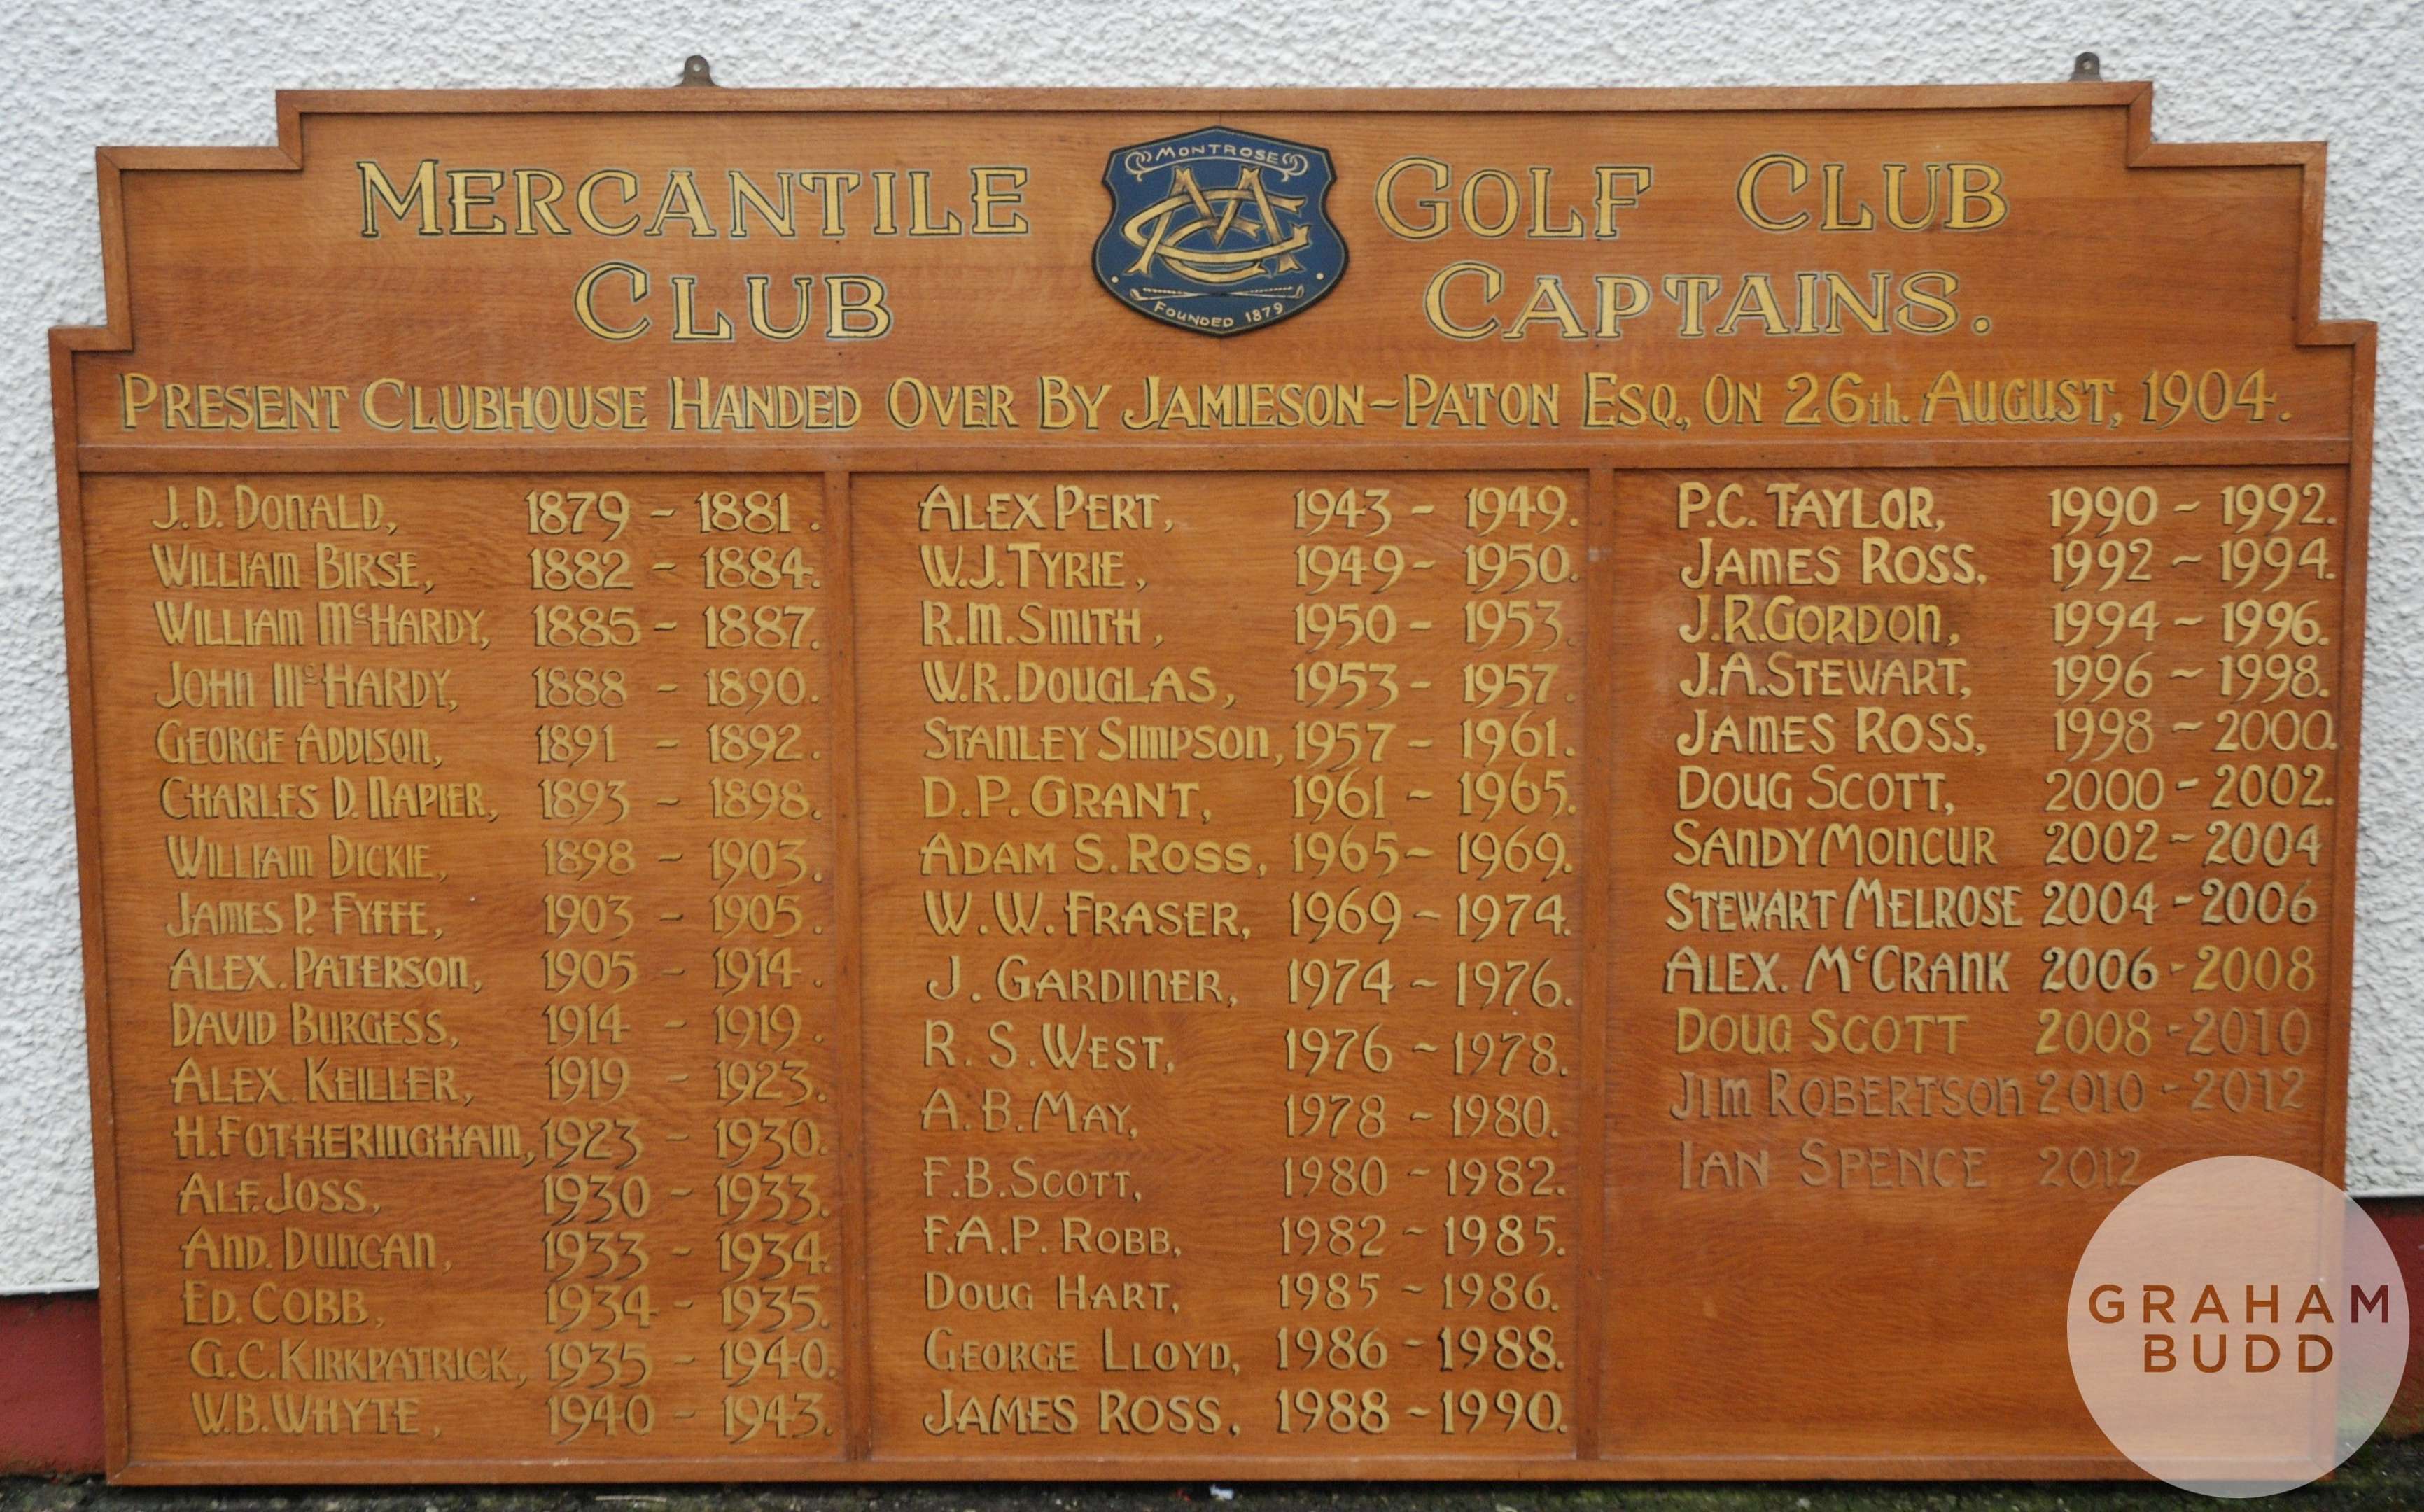 MERCANTILE GOLF CLUB
CLUB CAPTAINS.
MONTROSE
FOUNDED 1879
PRESENT CLUBHOUSE HANDED OVER BY JAMIESON~PATON ESQ., ON 26th. AUGUST, 1904.
J.D. DONALD, 1879 - 1881.
WILLIAM BIRSE, 1882 - 1884.
WILLIAM McHARDY, 1885 - 1887.
JOHN McHARDY, 1888 - 1890.
GEORGE ADDISON, 1891 - 1892.
CHARLES D. NAPIER, 1893 - 1898.
WILLIAM DICKIE, 1898 - 1903.
JAMES P. FYFFE, 1903 - 1905.
ALEX. PATERSON, 1905 - 1914.
DAVID BURGESS, 1914 - 1919.
ALEX. KEILLER, 1919 - 1923.
H. FOTHERINGHAM, 1923 - 1930.
ALF. JOSS, 1930 - 1933.
AND. DUNCAN, 1933 - 1934.
ED. COBB, 1934 - 1935.
G.C. KIRKPATRICK, 1935 - 1940.
W.B. WHYTE, 1940 - 1943.
ALEX PERT, 1943 - 1949.
W.J. TYRIE, 1949 - 1950.
R.M. SMITH, 1950 - 1953.
W.R. DOUGLAS, 1953 - 1957.
STANLEY SIMPSON, 1957 - 1961.
D.P. GRANT, 1961 - 1965.
ADAM S. ROSS, 1965 ~ 1969.
W.W. FRASER, 1969 ~ 1974.
J. GARDINER, 1974 ~ 1976.
R.S. WEST, 1976 ~ 1978.
A.B. MAY, 1978 - 1980.
F.B. SCOTT, 1980 - 1982.
F.A.P. ROBB, 1982 ~ 1985.
DOUG HART, 1985 ~ 1986.
GEORGE LLOYD, 1986 - 1988.
JAMES ROSS, 1988 ~ 1990.
P.C. TAYLOR, 1990 ~ 1992.
JAMES ROSS, 1992 ~ 1994.
J.R. GORDON, 1994 ~ 1996.
J.A. STEWART, 1996 ~ 1998.
JAMES ROSS, 1998 ~ 2000.
DOUG SCOTT, 2000 - 2002.
SANDY MONCUR 2002 - 2004
STEWART MELROSE 2004 - 2006
ALEX. McCRANK 2006 - 2008
DOUG SCOTT 2008 - 2010
JIM ROBERTSON 2010 - 2012
IAN SPENCE 2012
GRAHAM
BUDD